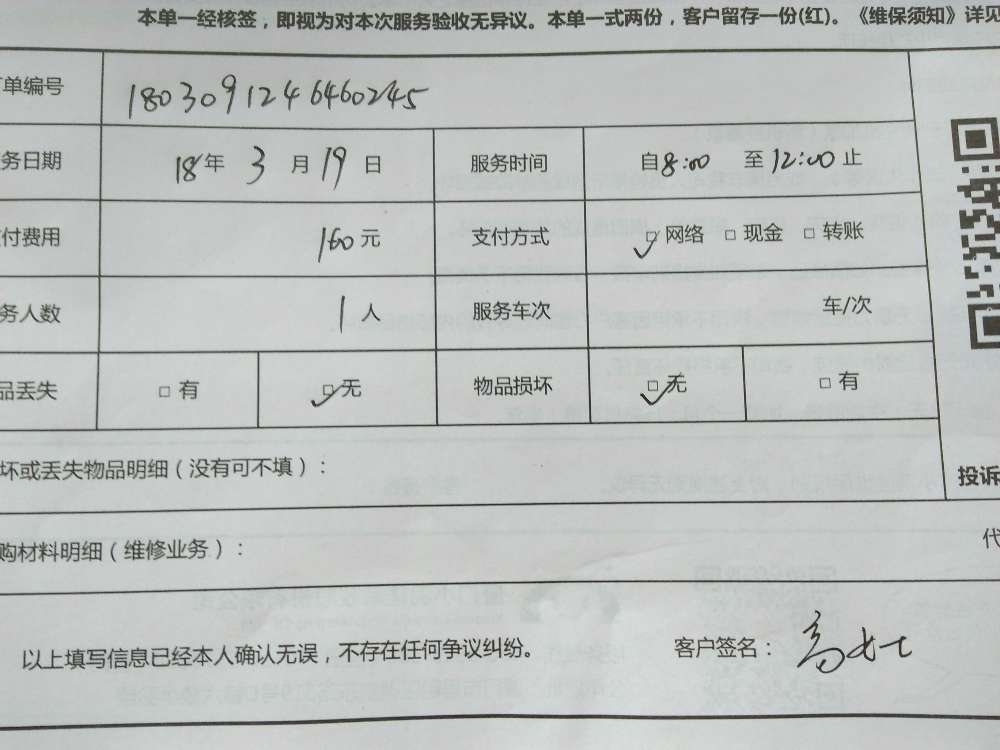 本单一经核签，即视为对本次服务验收无异议。本单一式两份，客户留存一份(红)。《维保须知》详见
单编号 180309124646460245
务日期 18年 3 月 19 日 服务时间 自8:00 至12:00止
付费用 160元 支付方式 网络 现金 转账
务人数 1人 服务车次 车/次
品丢失 有 无 物品损坏 无 有
坏或丢失物品明细（没有可不填）：
投诉
购材料明细（维修业务）：
代
以上填写信息已经本人确认无误，不存在任何争议纠纷。 客户签名：